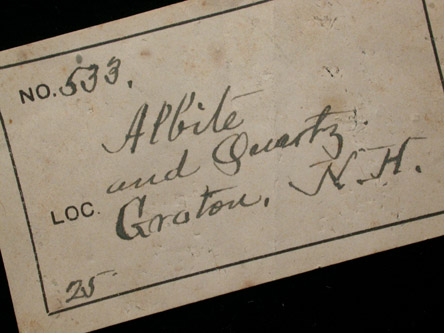 NO. 533.
Albite
and Quartz.
LOC. Groton, N.H.
25